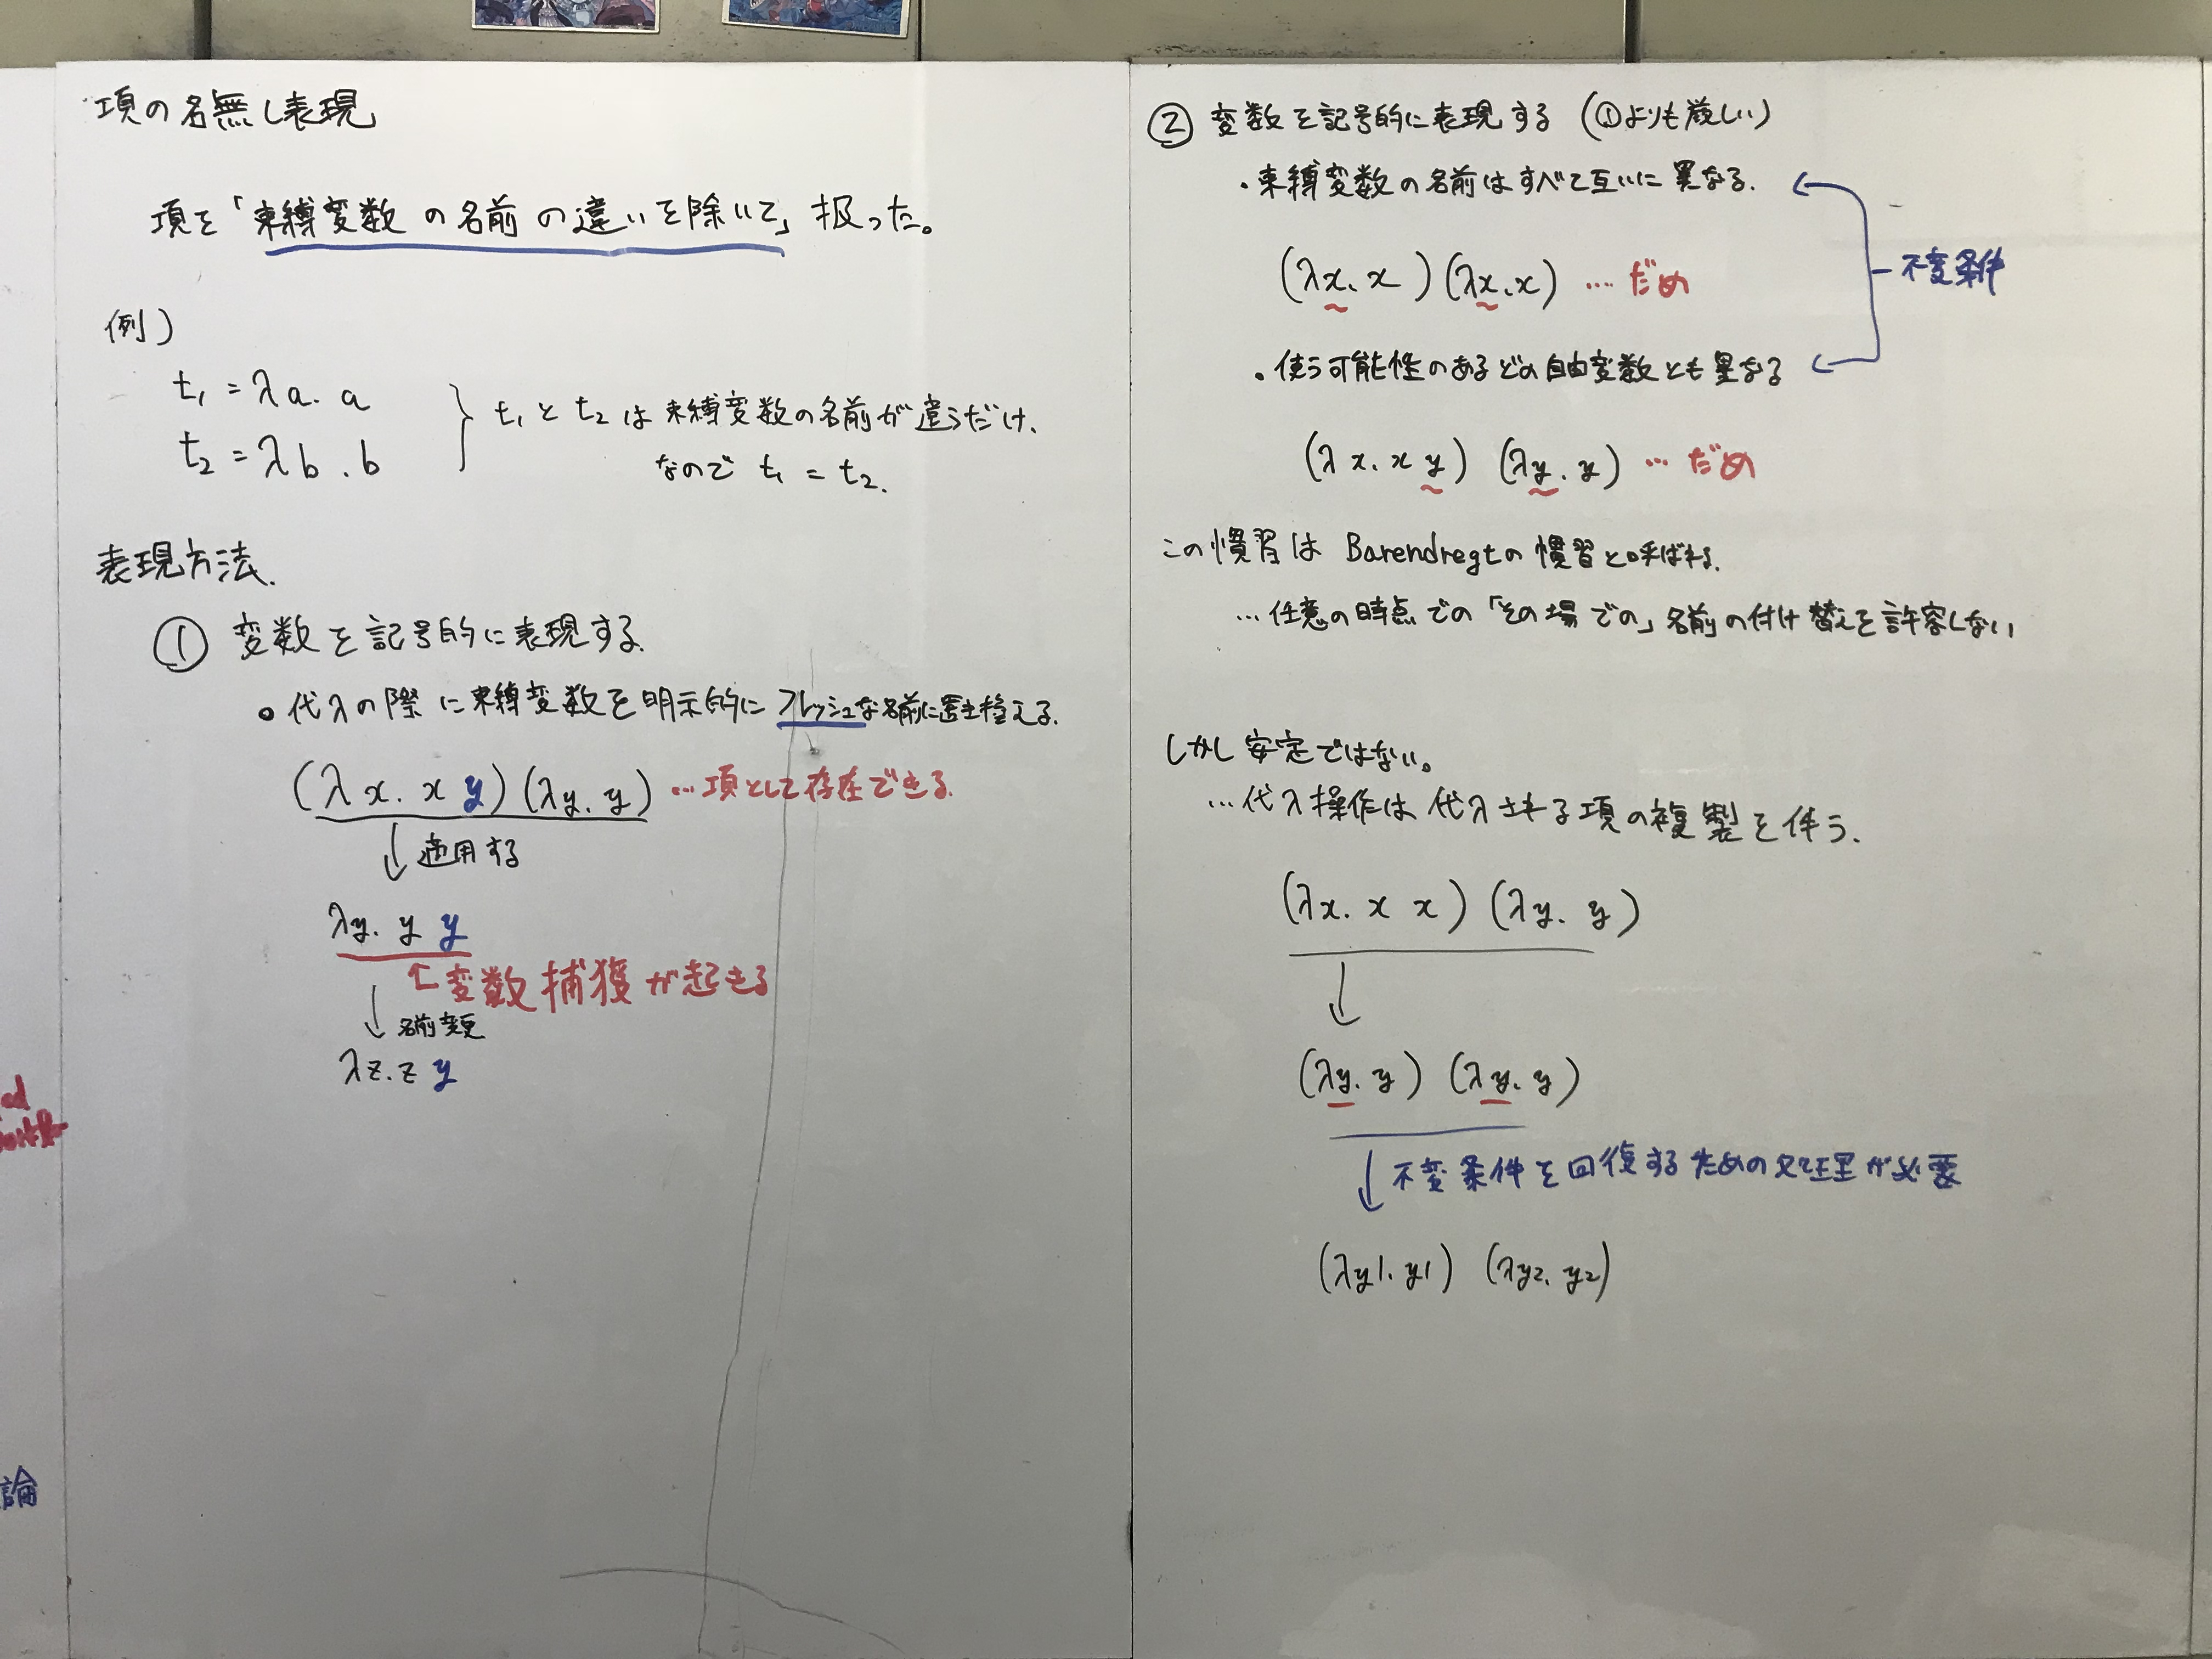 項の名無し表現
項を「束縛変数の名前の違いを除いて」扱った。
例)
t₁ = λa. a
t₂ = λb. b
t₁とt₂は束縛変数の名前が違うだけ.
なので t₁ = t₂.
表現方法.
① 変数を記号的に表現する.
・代入の際に束縛変数を明示的にフレッシュな名前に置き換える.
(λx. x y)(λy. y) …項として存在できる.
↓適用する
λy. y y
↑変数捕獲が起きる
↓名前変更
λz. z y
② 変数を記号的に表現する (①よりも厳しい)
・束縛変数の名前はすべて互いに異なる.
(λx. x)(λx. x) …. だめ
不変条件
・使う可能性のあるどの自由変数とも異なる
(λx. x y) (λy. y) … だめ
この慣習は Barendregtの慣習と呼ばれる.
… 任意の時点での「その場での」名前の付け替えを許容しない
しかし安定ではない。
… 代入操作は代入される項の複製を伴う.
(λx. x x) (λy. y)
↓
(λy. y) (λy. y)
↓不変条件を回復するための処理が必要
(λy1. y1) (λy2. y2)
論